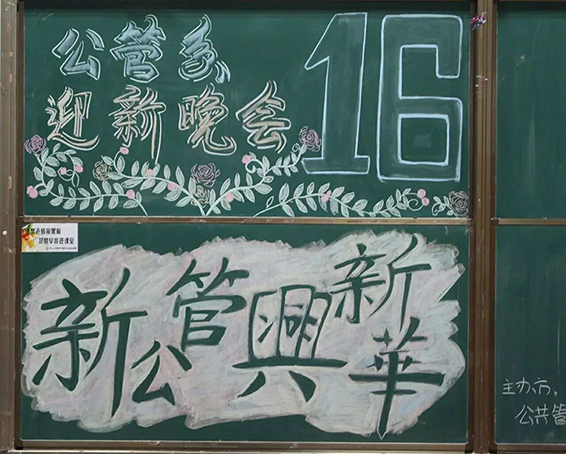 公管系
迎新晚会
16
新公管興新華
主办方,
公共管